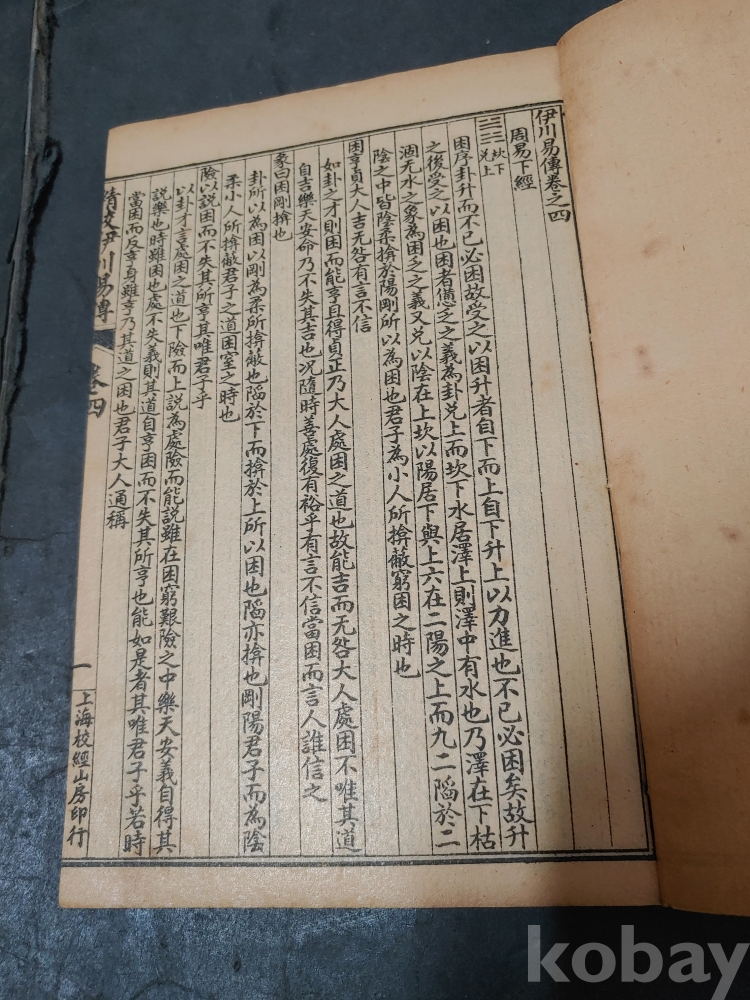 伊川易傳卷之四
周易下經
坎下
兌上
困序卦升而不已必困故受之以困升者自下而上自下升上以力進也不已必困矣故升
之後受之以困也困者憊乏之義為卦兌上而坎下水居澤上則澤中有水也乃澤在下枯
涸无水之象為困乏之義又兌以陰在上坎以陽居下與上六在二陽之上而九二陷於二
陰之中皆陰柔揜於陽剛所以為困也君子為小人所揜蔽窮困之時也
困亨貞大人吉无咎有言不信
如卦之才則困而能亨且得貞正乃大人處困之道也故能吉而无咎大人處困不唯其道
自吉樂天安命乃不失其吉也况隨時善處復有裕乎有言不信當困而言人誰信之
彖曰困剛揜也
卦所以為困以剛為柔所揜蔽也陷於下而揜於上所以困也陷亦揜也剛陽君子而為陰
柔小人所揜蔽君子之道困窒之時也
險以説困而不失其所亨其唯君子乎
以卦才言處困之道也下險而上説為處險而能説雖在困窮艱險之中樂天安義自得其
説樂也時雖困也處不失義則其道自亨困而不失其所亨也能如是者其唯君子乎若時
當困而反亨身雖亨乃其道之困也君子大人通稱
伊川易傳
卷四
一
上海校經山房印行
kobay